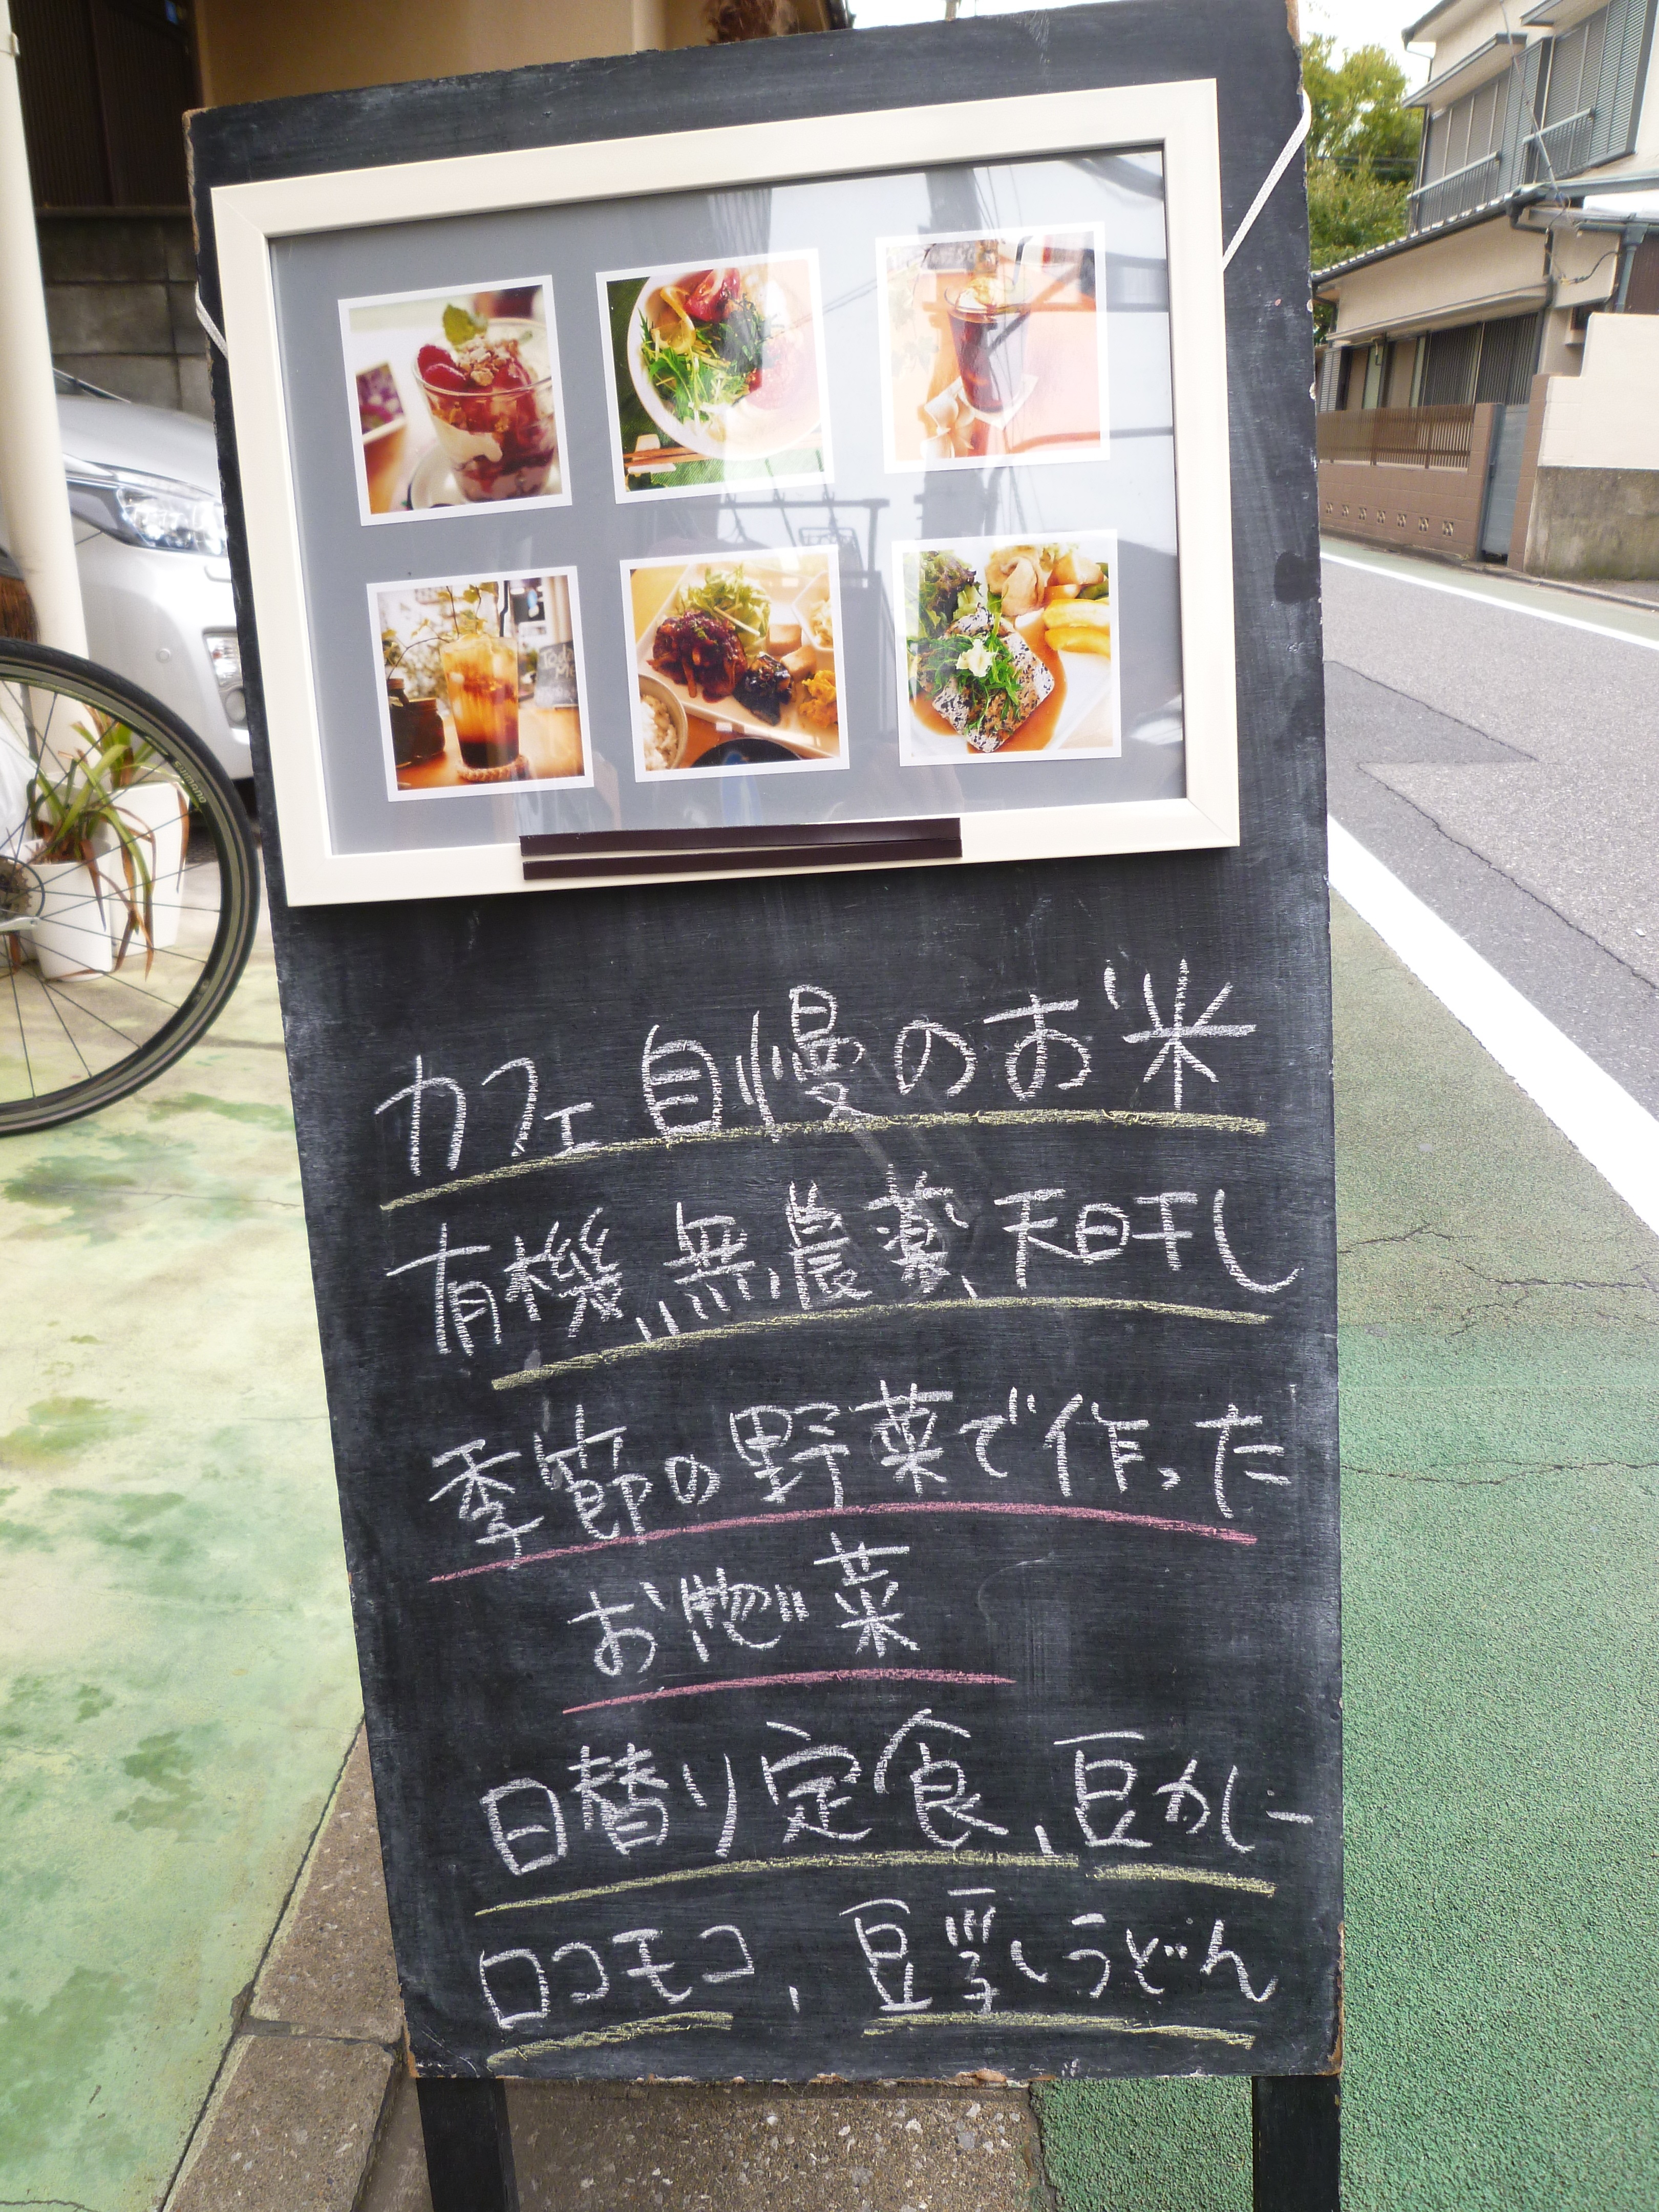 カフェ自慢のお米
有機、無農薬、天日干し
季節の野菜で作った
お惣菜
日替り定食、豆カレー
ロコモコ、豆乳うどん